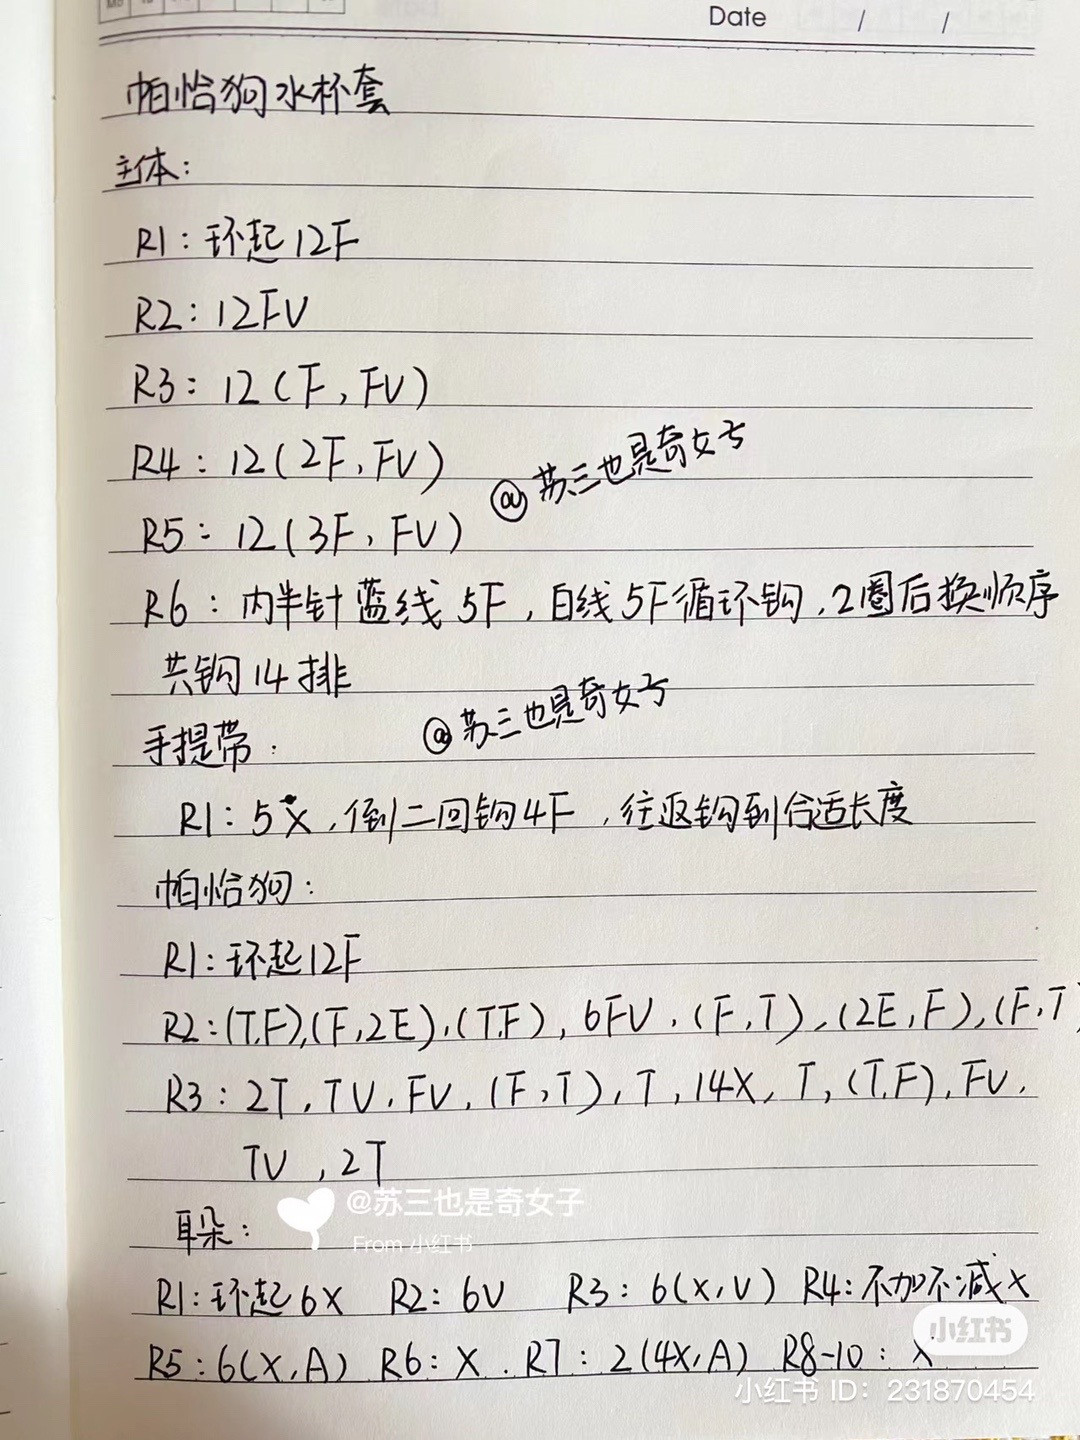 Date / /
帕恰狗水杯套
主体：
R1：环起12F
R2：12FV
R3：12（F，FV）
R4：12（2F，FV）
@苏三也是奇女子
R5：12（3F，FV）
R6：内半针蓝线5F，白线5F循环钩，2圈后换顺序
共钩14排
@苏三也是奇女子
手提带：
R1：5X，倒二回钩4F，往返钩到合适长度
帕恰狗：
R1：环起12F
R2：(T,F),(F,2E),(T,F),6FV,(F,T),(2E,F),(F,T
R3：2T,TV,FV,(F,T),T,14X,T,(T,F),FV,
TV,2T
@苏三也是奇女子
From 小红书
耳朵：
R1：环起6X R2：6V R3：6(X,V) R4：不加不减X
小红书
R5：6(X,A) R6：X R7：2(4X,A) R8-10：X
小红书 ID：231870454